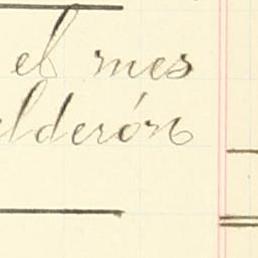 el mes
alderón